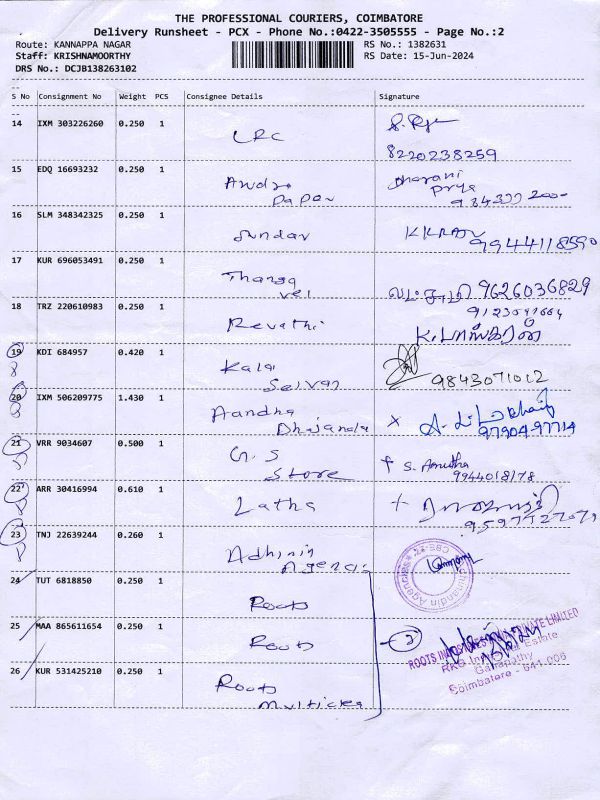 THE PROFESSIONAL COURIERS, COIMBATORE
Delivery Runsheet - PCX - Phone No.:0422-3505555 - Page No.:2
Route: KANNAPPA NAGAR RS No.: 1382631
Staff: KRISHNAMOORTHY RS Date: 15-Jun-2024
DRS No.: DCJB138263102
S No Consignment No Weight PCS Consignee Details Signature
14 IXM 303226260 0.250 1 LRC
8220238259
15 EDQ 16693232 0.250 1
Dharani
Priya
16 SLM 348342325 0.250 1 Sundar
9944118590
17 KUR 696053491 0.250 1 Thanga
vel 9626036829
18 TRZ 220610983 0.250 1 Revathi
K. பாஸ்கரன்
19 KDI 684957 0.420 1 Kalai
Selvan 9843071012
20 IXM 506209775 1.430 1 Aandha
97904-97714
21 VRR 9034607 0.500 1 G. S
Store S. Amutha
9944018178
22 ARR 30416994 0.610 1 Latha
23 TNJ 22639244 0.260 1
24 TUT 6818850 0.250 1 Roots
25 MAA 865611654 0.250 1 Roots
ROOTS INDUSTRIES PRIVATE LIMITED
RKG Industrial Estate
Ganapathy
Coimbatore - 641 006
26 KUR 531425210 0.250 1 Roots
Multiclea